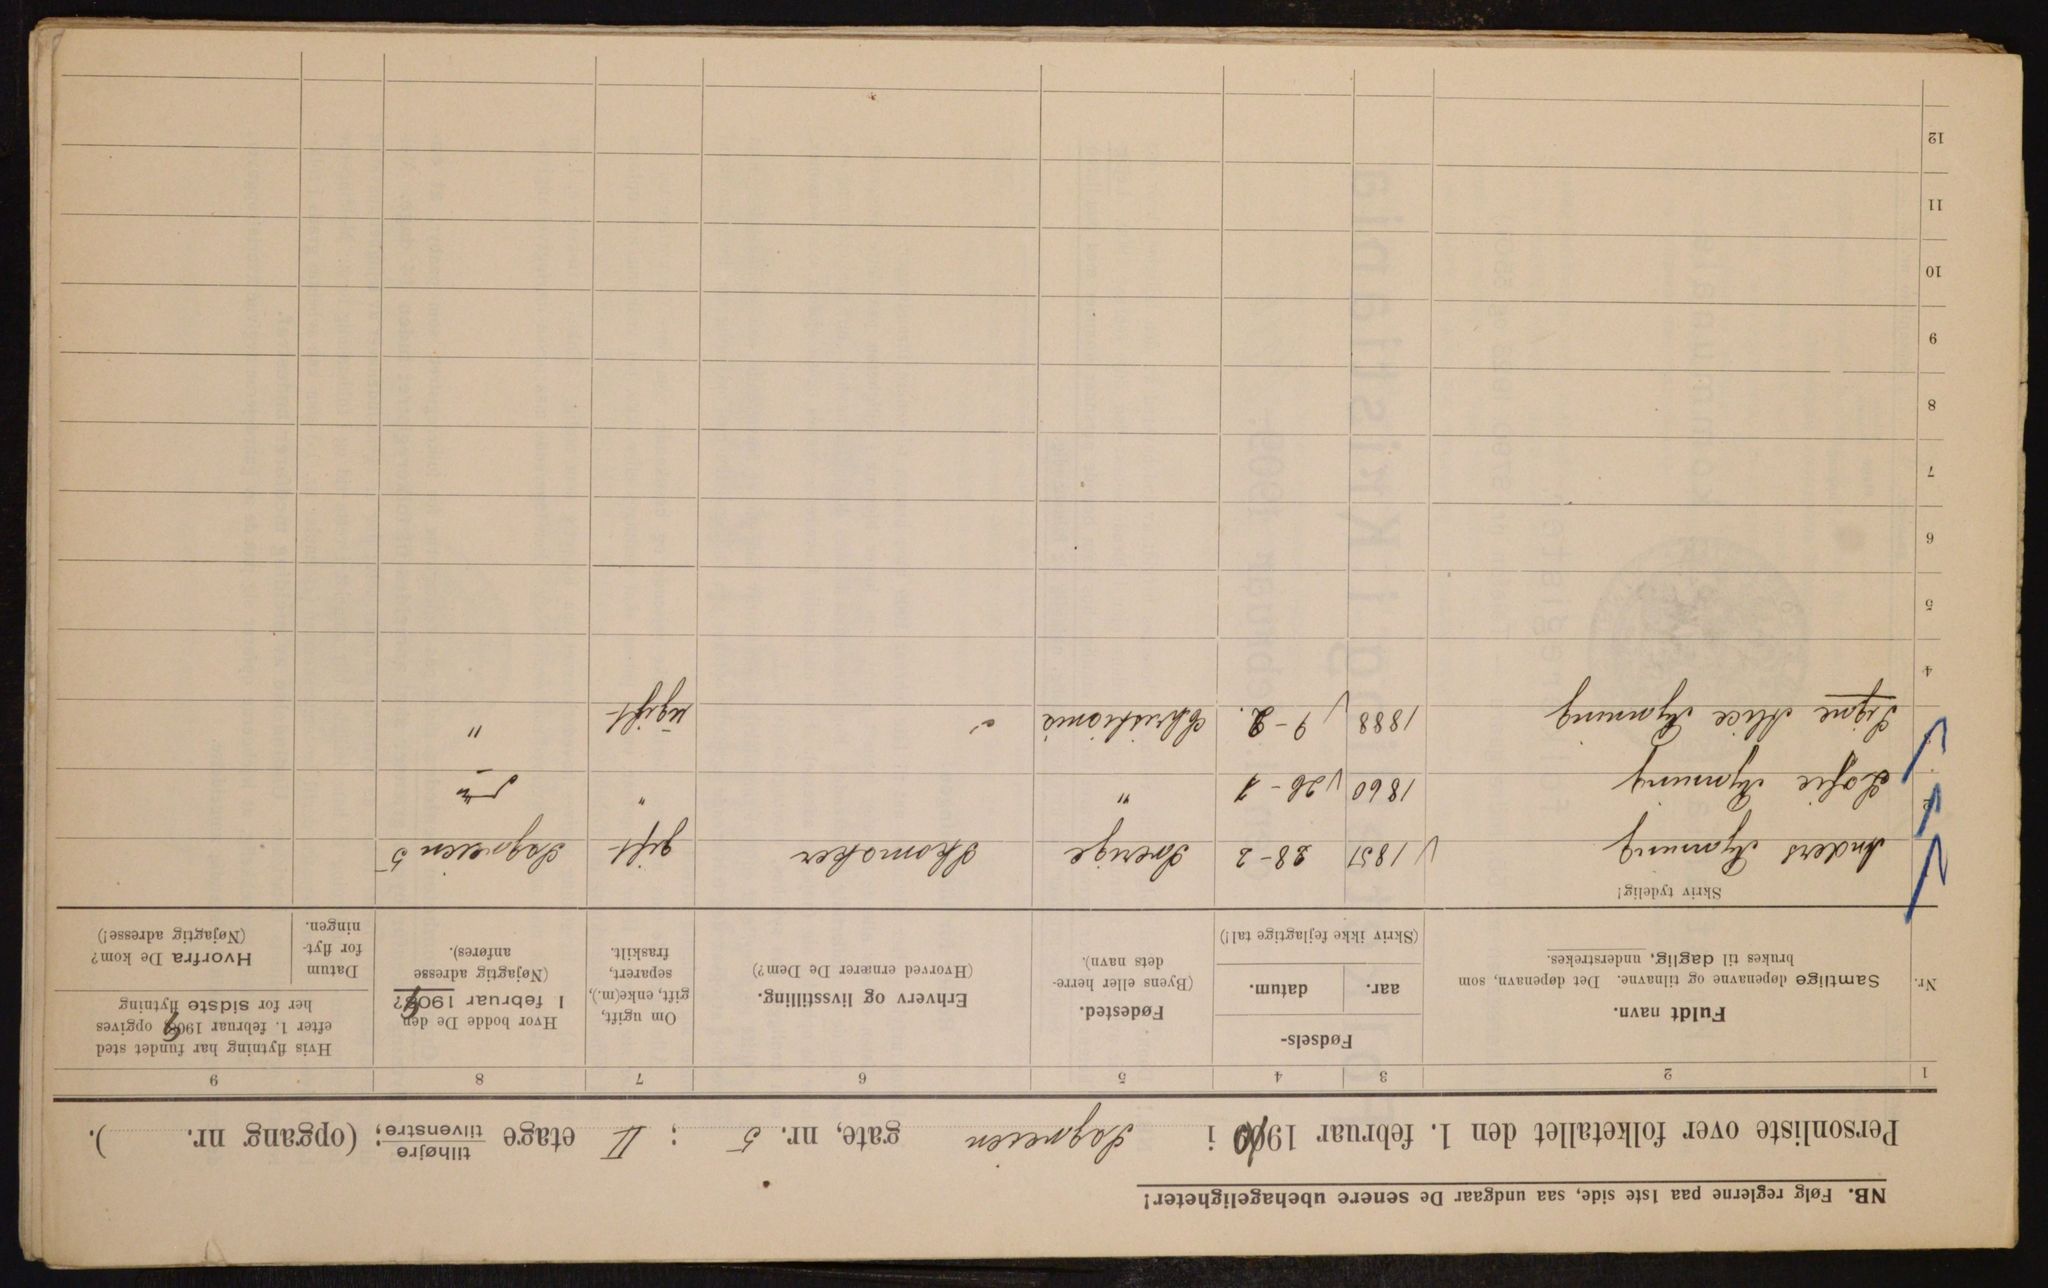 NB. Følg reglerne paa 1ste side, saa undgaar De senere ubehageligheter!
Personliste over folketallet den 1. februar 1910 i Sagveien gate, nr. 5 ; II etage tilhøjre tilvenstre; (opgang nr. ).
1 2 3 4 5 6 7 8 9
Nr.
Fuldt navn.
Samtlige døpenavne og tilnavne. Det døpenavn, som
brukes til daglig, understrekes.
Fødsels-
aar. datum.
(Skriv ikke fejlagtige tal!)
Fødested.
(Byens eller herre-
dets navn).
Erhverv og livsstilling.
(Hvorved ernærer De Dem?)
Om ugift,
gift, enke(m.),
separert,
fraskilt.
Hvor bodde De den
1 februar 1909?
(Nøjagtig adresse
anføres).
Hvis flytning har fundet sted
efter 1. februar 1909 opgives
her for sidste flytning
Datum
for flyt-
ningen.
Hvorfra De kom?
(Nøjagtig adresse!)
Skriv tydelig!
Anders 1851 28-2 Sverige Skomaker gift Sagveien 5
2 Sofie 1860 26-1 " "
Signe Alice 1888 9-2. Christiania ugift "
4
5
6
7
8
9
10
11
12